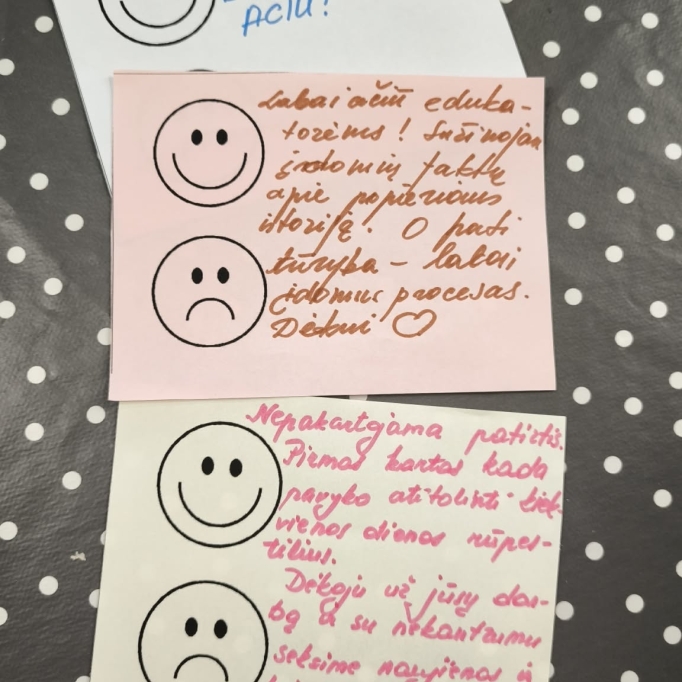 AČIŪ!
Labai ačiū eduka-
torėms! Sužinojau
įdomių faktų
apie popieriaus
istoriją. O pati
kūryba – labai
įdomus procesas.
Dėkui
Nepakartojama patirtis.
Pirmas kartas kada
pavyko atitolinti kiek-
vienos dienos rūpes-
tilius.
Dėkoju už jūsų dar-
bą ir su nekantrumu
seksime naujienas ir